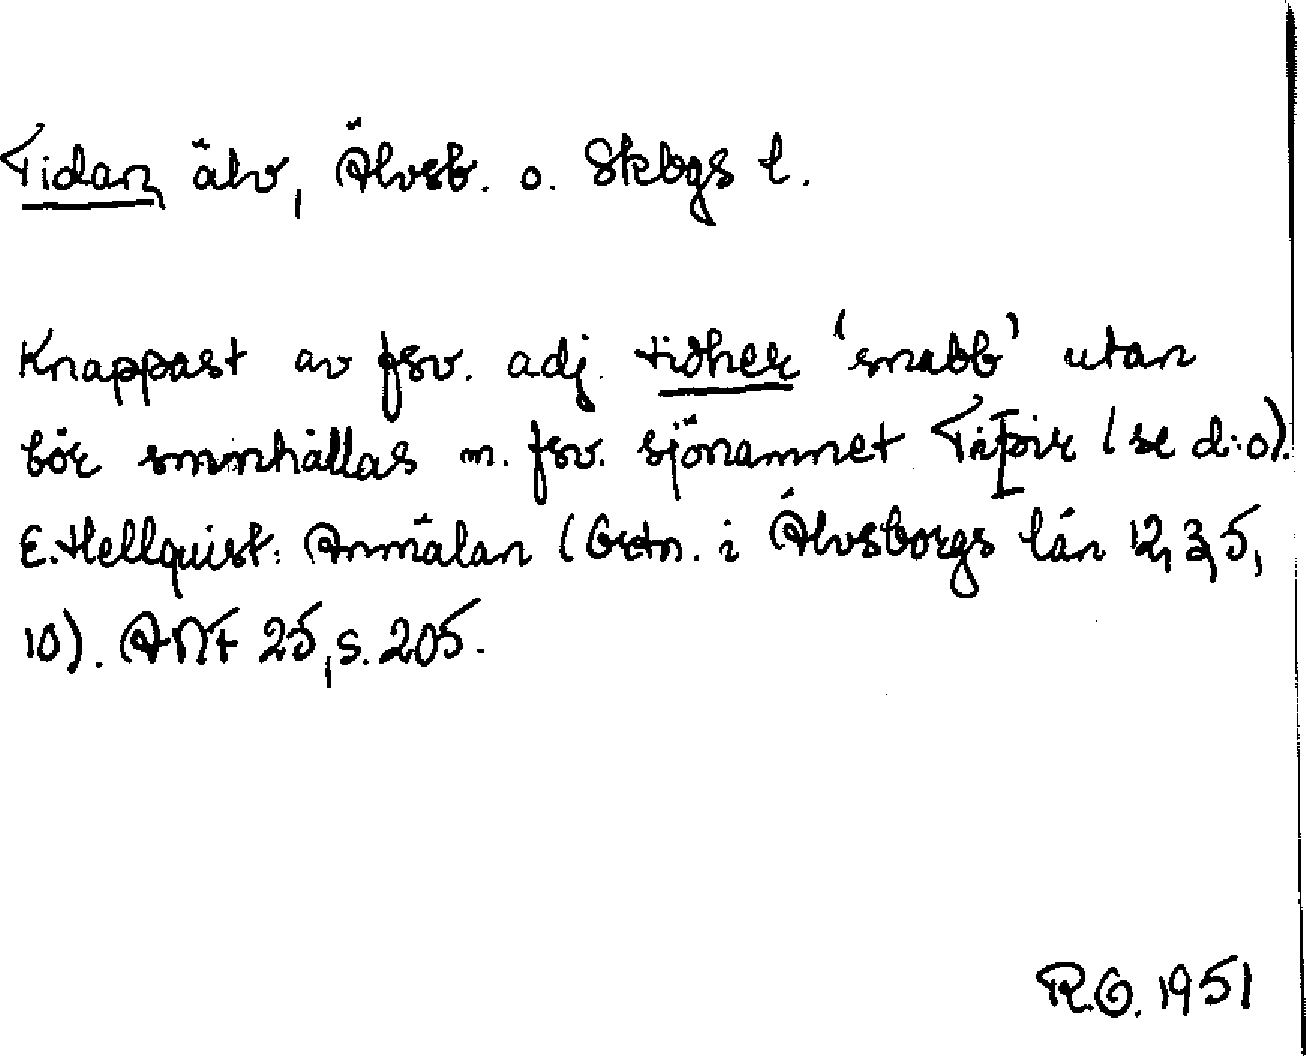 Tidan, älv, Älvsb. o. Skbgs l.
Knappast av fsv. adj. tidher 'snabb' utan
bör smnhållas m. fsv. sjönamnet (se d:o).
E. Hellquist: Anmälan (Ortn. i Älvsborgs län 12, 3, 5,
10). ANF 25, s. 205.
R.O. 1951